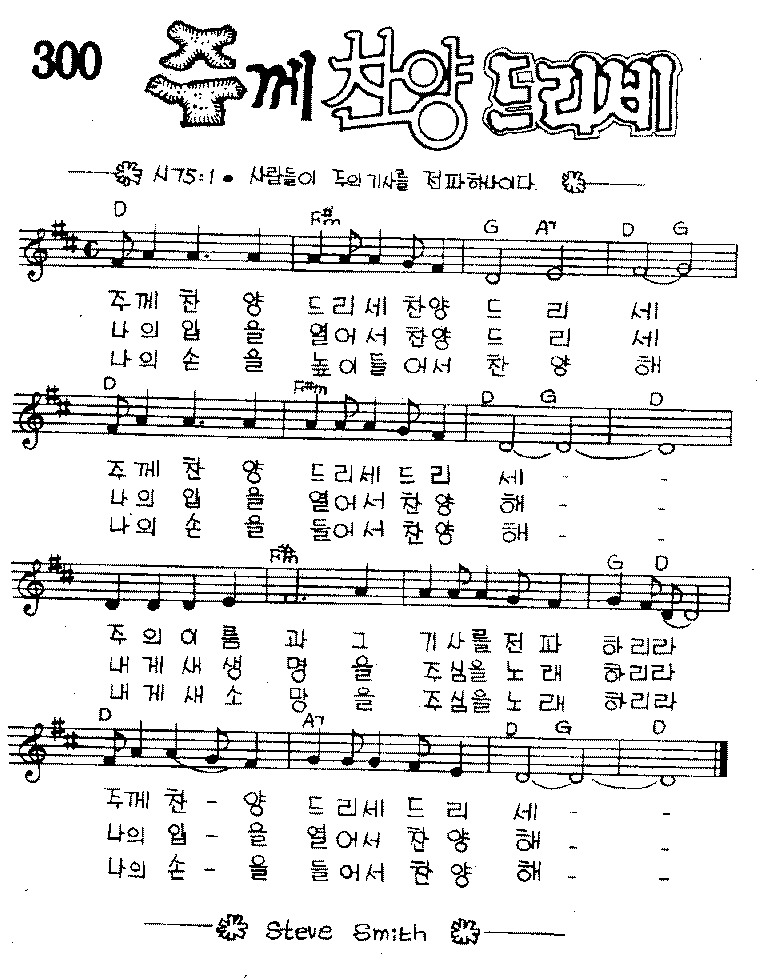 300 주께 찬양 드리세
시75:1 • 사람들이 주의 기사를 전파하나이다.
D F#m G A7 D G
주께 찬 양 드리세 찬양 드 리 세
나의 입 을 열어서 찬양 드 리 세
나의 손 을 높이들 어서 찬 양 해
D F#m D G D
주께 찬 양 드리세 드 리 세 - -
나의 입 을 열어서 찬 양 해 - -
나의 손 을 들어서 찬 양 해 - -
F#m G D
주 의 이 름 과 그 기사를 전 파 하리라
내 게 새 생 명 을 주심을 노 래 하리라
내 게 새 소 망 을 주심을 노 래 하리라
D A7 D G D
주께 찬 - 양 드 리세 드 리 세 - -
나의 입 - 을 열어서 찬 양 해 - -
나의 손 - 을 들어서 찬 양 해 - -
Steve Smith